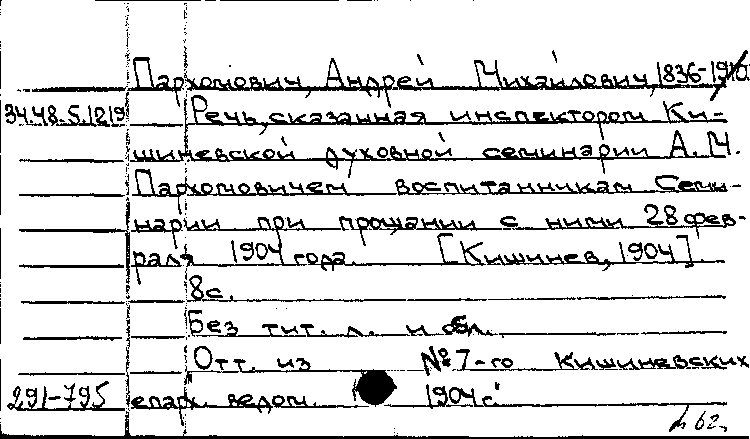 Пархомович, Андрей Михайлович, 1836-1910
34.48.5.1219 Речь, сказанная инспектором Ки-
шиневской духовной семинарии А. М.
Пархомовичем воспитанникам Семи-
нарии при прощании с ними 28 фев-
раля 1904 года. [Кишинев, 1904].
8с.
Без тит. л. и обл.
Отт. из №7-го Кишиневских
291-795 епарх. ведом. 1904 г.
62